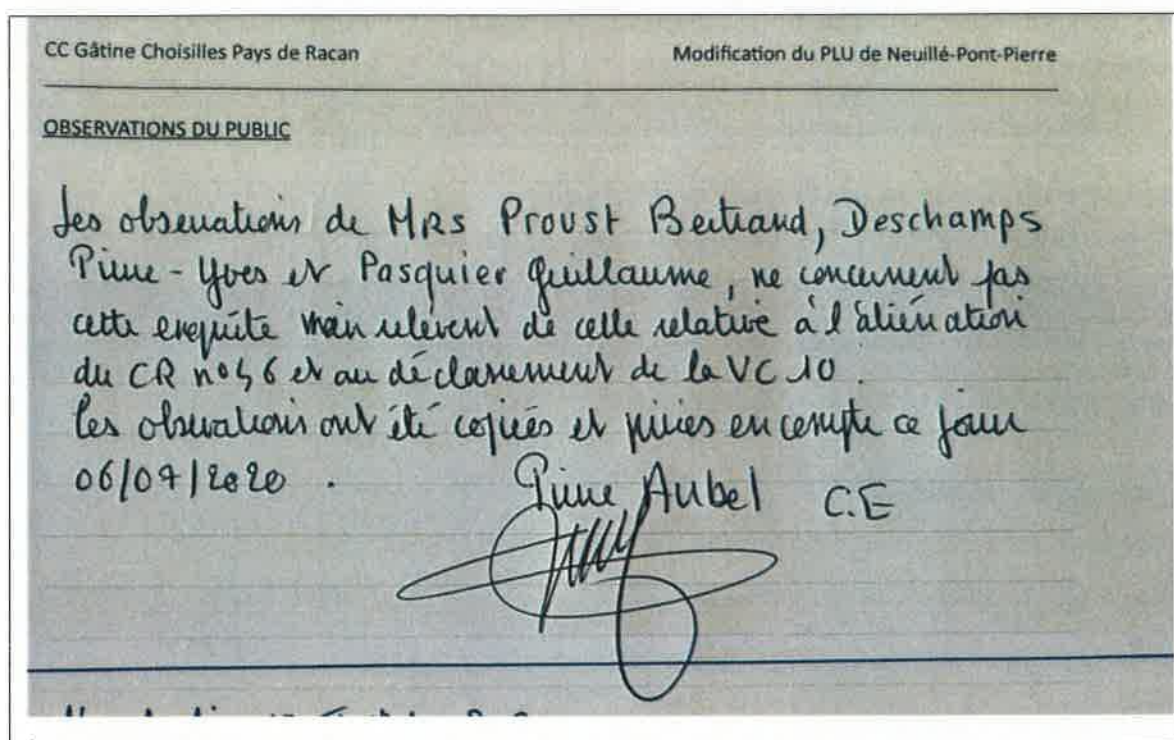 CC Gâtine Choisilles Pays de Racan Modification du PLU de Neuillé-Pont-Pierre
OBSERVATIONS DU PUBLIC
Les observations de MRs Proust Bertrand, Deschamps
Pierre-Yves et Pasquier Guillaume, ne concernent pas
cette enquête mais relèvent de celle relative à l'aliénation
du CR n° 56 et au déclassement de la VC 10.
Les observations ont été copiées et prises en compte ce jour
06/07/2020.
Pierre Aubel C.E